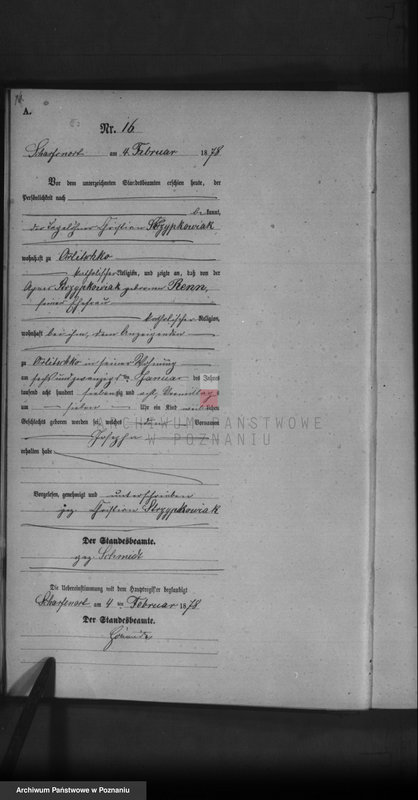 A.
Nr. 16
Scharfenort am 4. Februar 1878
Vor dem unterzeichneten Standesbeamten erschien heute, der
Persönlichkeit nach
be kannt,
der Tagelöhner Christian Skrzypkowiak
wohnhaft zu Orlitschko
katholischer Religion, und zeigte an, daß von der
Agnes Skrzypkowiak geborenen Renn,
seiner Ehefrau
katholischer Religion,
wohnhaft bei ihm, dem Anzeigenden
zu Orlitschko in seiner Wohnung
am sechsundzwanzigsten Januar des Jahres
tausend acht hundert siebenzig und acht, Vormittags
um sieben Uhr ein Kind männlichen
Geschlechts geboren worden sei, welches Vornamen
erhalten habe
ARCHIWUM PAŃSTWOWE
W POZNANIU
Vorgelesen, genehmigt und unterschrieben
gez. Christian Skrzypkowiak
Der Standesbeamte.
gez. Schmidt
Die Uebereinstimmung mit dem Hauptregister beglaubigt
Scharfenort am 4ten Februar 1878
Der Standesbeamte.
Archiwum Państwowe w Poznaniu